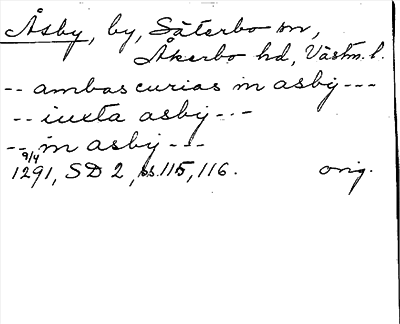 Åsby, by, Säterbo sn,
Åkerbo hd, Västm. l.
-- ambas curias in asby ---
-- iuxta asby ---
-- in asby ---
9/4
1291, SD 2, ss. 115, 116. orig.